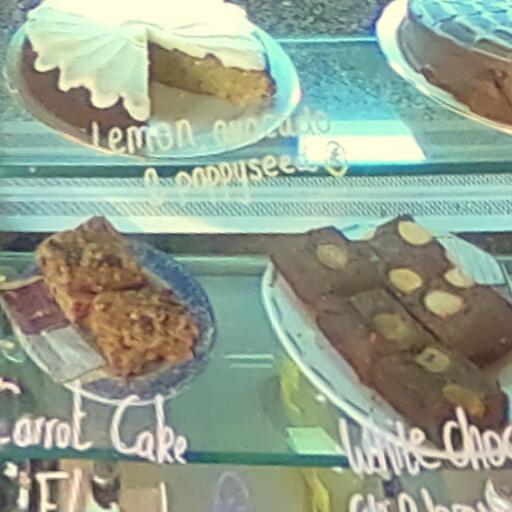 Lemon, avocado
& poppyseed
Carrot Cake
White choc